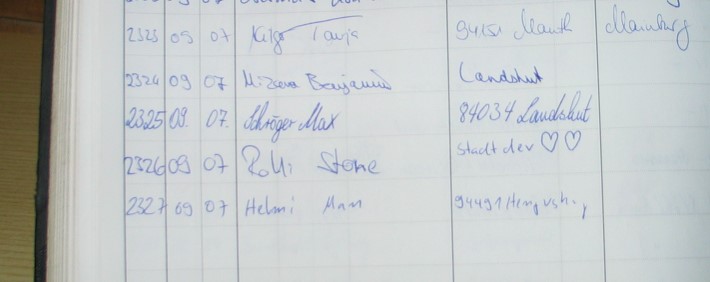 2323 09 07 94151 Mauth Mainburg
2324 09 07 Benjamin Landshut
2325 09. 07. Schröger Max 84034 Landshut
2326 09 07 Rolli Stone Stadt der ♡♡
2327 09 07 Helmi Man 94491